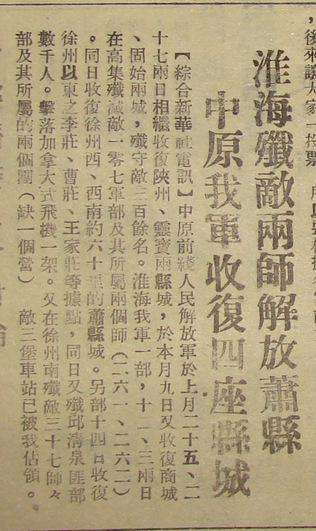 ，後來讓大家一投票
淮海殲敵兩師解放蕭縣
中原我軍收復四座縣城
【綜合新華社電訊】中原前綫人民解放軍於上月二十五、二
十七兩日相繼收復陝州、靈寶兩縣城，於本月九日又收復商城
、固始兩城，殲守敵三百餘名。淮海我軍一部，十一、三兩日
在高集殲滅敵一零七軍部及其所屬兩個師（二六一、二六二）
。同日收復徐州西、西南約六十里的蕭縣城。另部十四日收復
徐州以東之李莊、曹莊、王家莊等據點，同日又殲邱清泉匪部
數千人。擊落加拿大式飛機一架。又在徐州南殲敵三十七師々
部及其所屬的兩個團（缺一個營） 敵三堡車站已被我佔領。